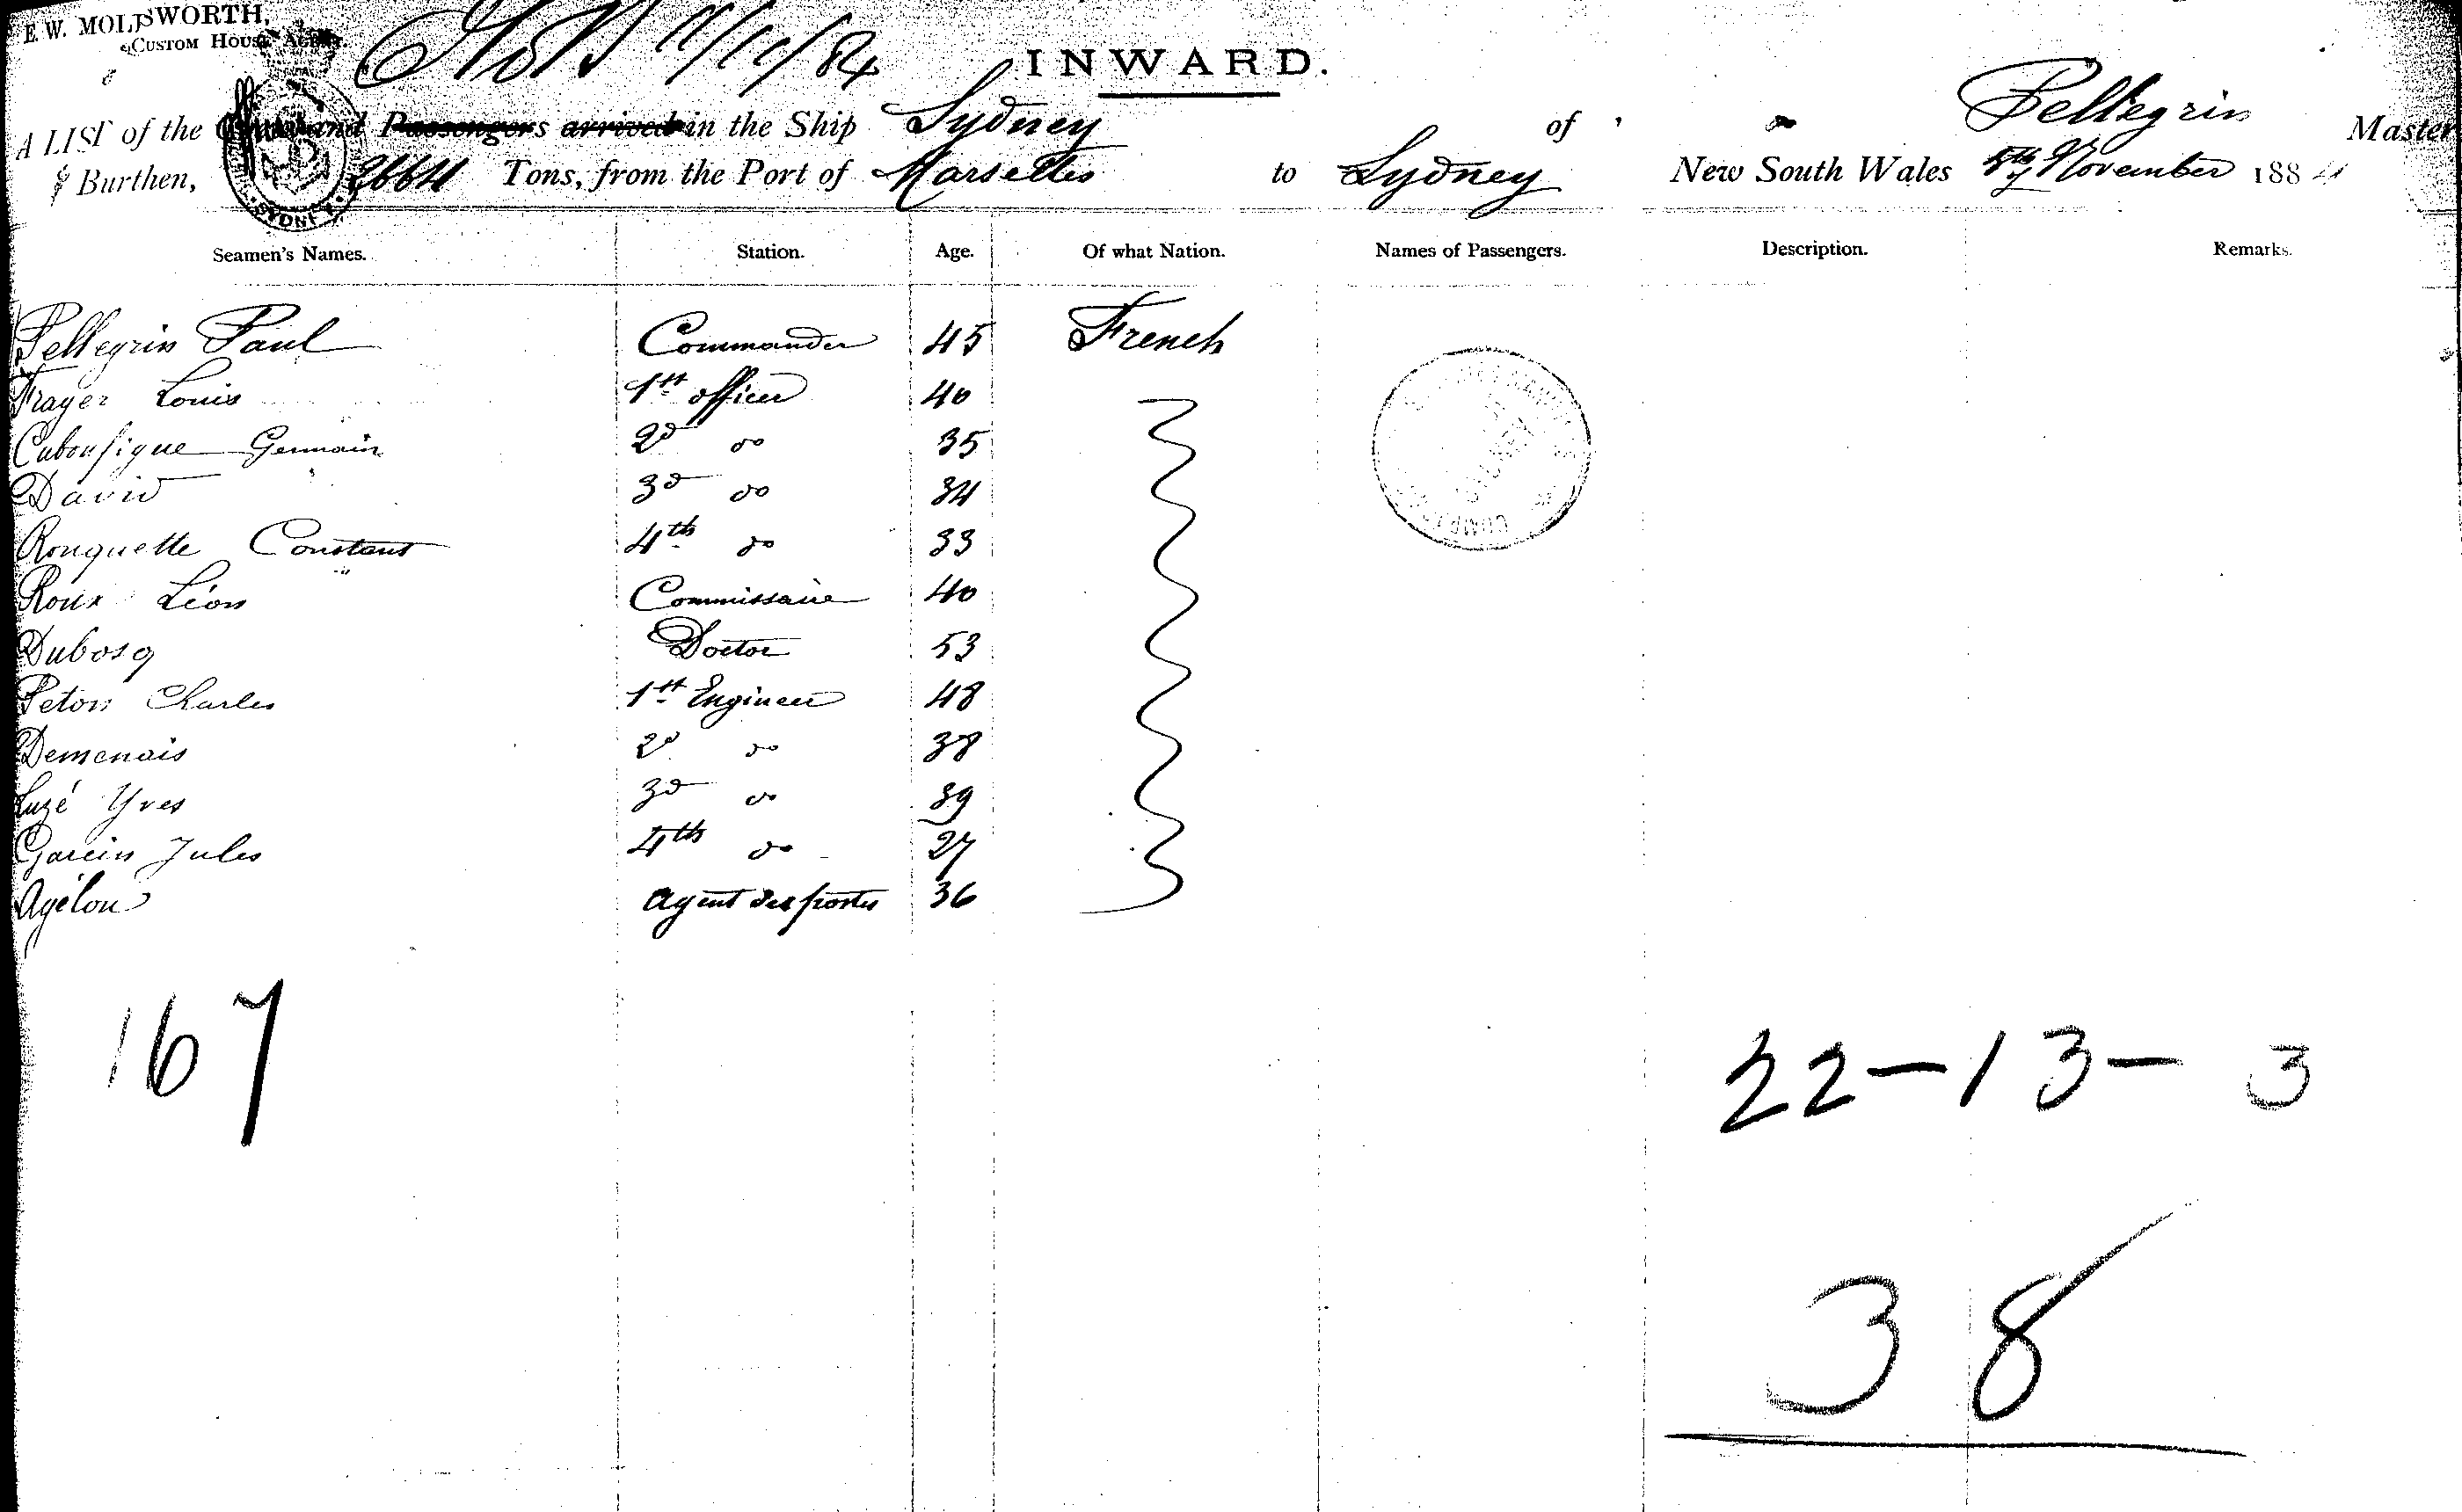 E. W. MOLDSWORTH,
CUSTOM HOUSE AGENT.
11/11/84
INWARD.
A LIST of the Crew and Passengers arrived in the Ship Sydney of Pellegrin Master
Burthen, 2664 Tons, from the Port of Marseilles to Sydney New South Wales 5th November 1884
SYDNEY
Seamen's Names. Station. Age. Of what Nation. Names of Passengers. Description. Remarks.
Pellegrin Paul Commander 45 French
Frager Louis 1st officer 40
Germain 2d do 35
David 3d do 34
Rouquette Constant 4th do 33
Roux Léon Commissaire 40
Dubosq Doctor 53
Peton Charles 1st Engineer 48
Demenais 2d do 38
Luzé Yves 3d do 39
Garcin Jules 4th do 27
Agélou Agent des postes 36
SYDNEY
167
22-13-3
38